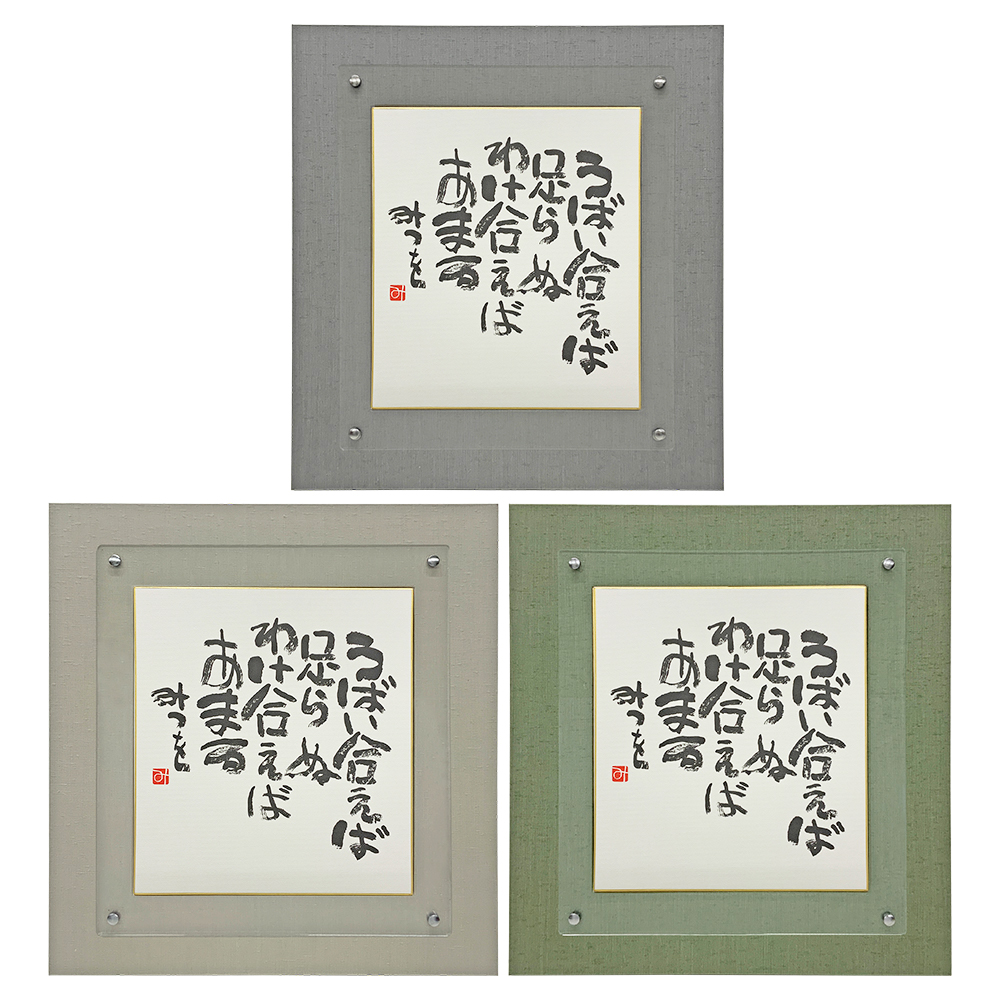 うばい合えば
足らぬ
わけ合えば
あまる
みつを
み
うばい合えば
足らぬ
わけ合えば
あまる
みつを
み
うばい合えば
足らぬ
わけ合えば
あまる
みつを
み